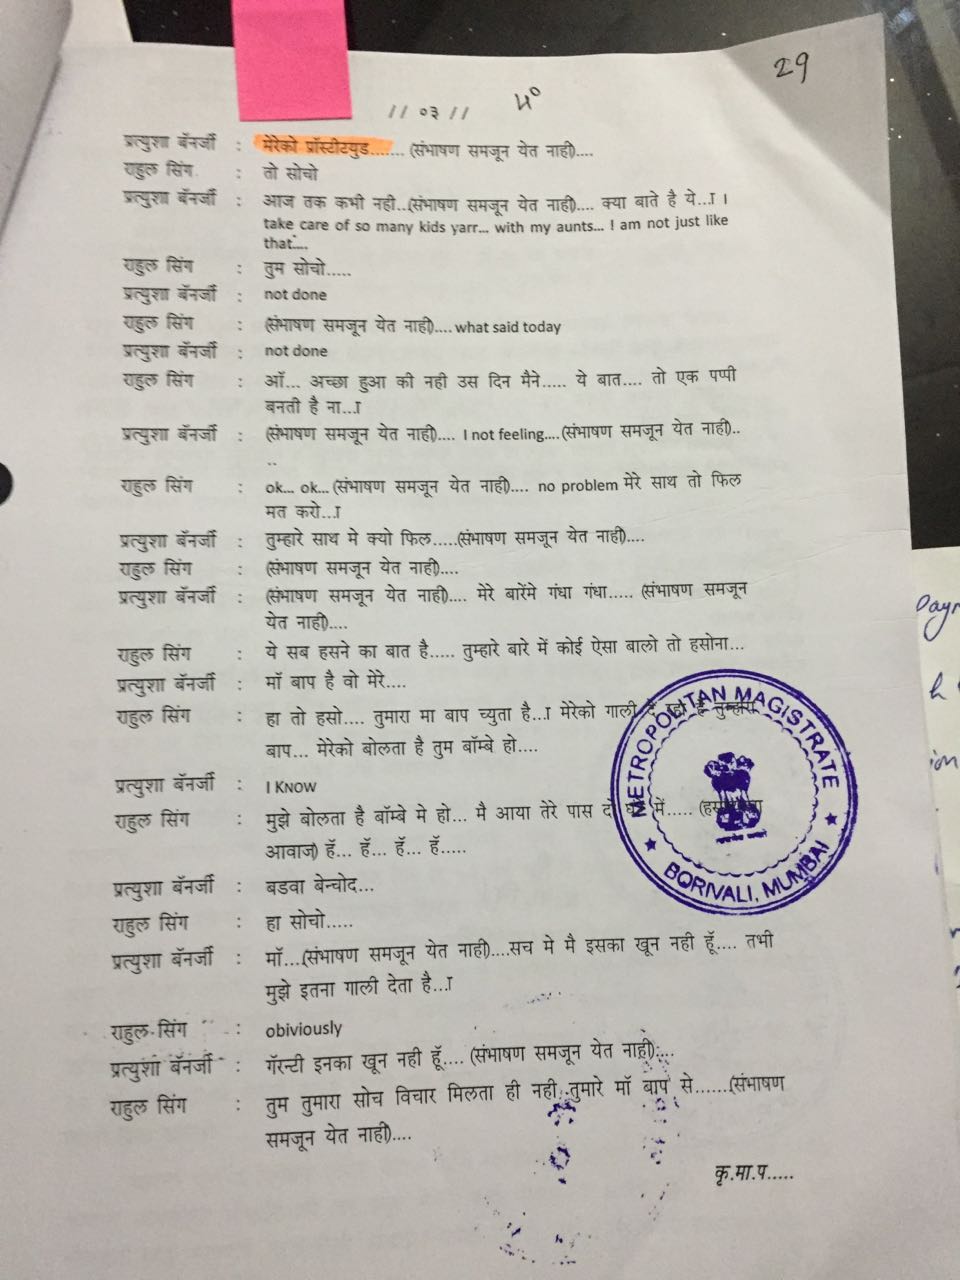 29
// ०३ //
प्रत्युशा बॅनर्जी : मेरेको प्रॉस्टीटयुड........ (संभाषण समजून येत नाही)....
राहुल सिंग : तो सोचो
प्रत्युशा बॅनर्जी : आज तक कभी नही...(संभाषण समजून येत नाही).... क्या बाते है ये...ा I
take care of so many kids yarr... with my aunts... I am not just like
that....
राहुल सिंग : तुम सोचो.....
प्रत्युशा बॅनर्जी : not done
राहुल सिंग : (संभाषण समजून येत नाही).... what said today
प्रत्युशा बॅनर्जी : not done
राहुल सिंग : ऑ... अच्छा हुआ की नही उस दिन मैने..... ये बात.... तो एक पप्पी
बनती है ना...ा
प्रत्युशा बॅनर्जी : (संभाषण समजून येत नाही).... I not feeling....(संभाषण समजून येत नाही)..
..
राहुल सिंग : ok... ok... (संभाषण समजून येत नाही).... no problem मेरे साथ तो फिल
मत करो...ा
प्रत्युशा बॅनर्जी : तुम्हारे साथ मे क्यो फिल.....(संभाषण समजून येत नाही)....
राहुल सिंग : (संभाषण समजून येत नाही)....
प्रत्युशा बॅनर्जी : (संभाषण समजून येत नाही).... मेरे बारेंमे गंधा गंधा..... (संभाषण समजून
येत नाही)....
राहुल सिंग : ये सब हसने का बात है..... तुम्हारे बारे में कोई ऐसा बालो तो हसोना...
प्रत्युशा बॅनर्जी : मॉ बाप है वो मेरे....
राहुल सिंग : हा तो हसो.... तुमारा मा बाप च्युता है...ा मेरेको गाली दे रहा है तुम्हारा
बाप... मेरेको बोलता है तुम बॉम्बे हो....
प्रत्युशा बॅनर्जी : I Know
राहुल सिंग : मुझे बोलता है बॉम्बे मे हो... मै आया तेरे पास दो में.....
आवाज) हॅ... हॅ... हॅ... हॅ.....
प्रत्युशा बॅनर्जी : बडवा बेन्चोद...
राहुल सिंग : हा सोचो.....
प्रत्युशा बॅनर्जी : मॉ...(संभाषण समजून येत नाही)....सच मे मै इसका खून नही हूँ.... तभी
मुझे इतना गाली देता है...ा
राहुल सिंग : obiviously
प्रत्युशा बॅनर्जी : गॅरन्टी इनका खून नही हूँ.... (संभाषण समजून येत नाही)....
राहुल सिंग : तुम तुमारा सोच विचार मिलता ही नही तुमारे मॉ बाप से.......(संभाषण
समजून येत नाही)....
कृ.मा.प.....
METROPOLITAN MAGISTRATE
BORIVALI, MUMBAI